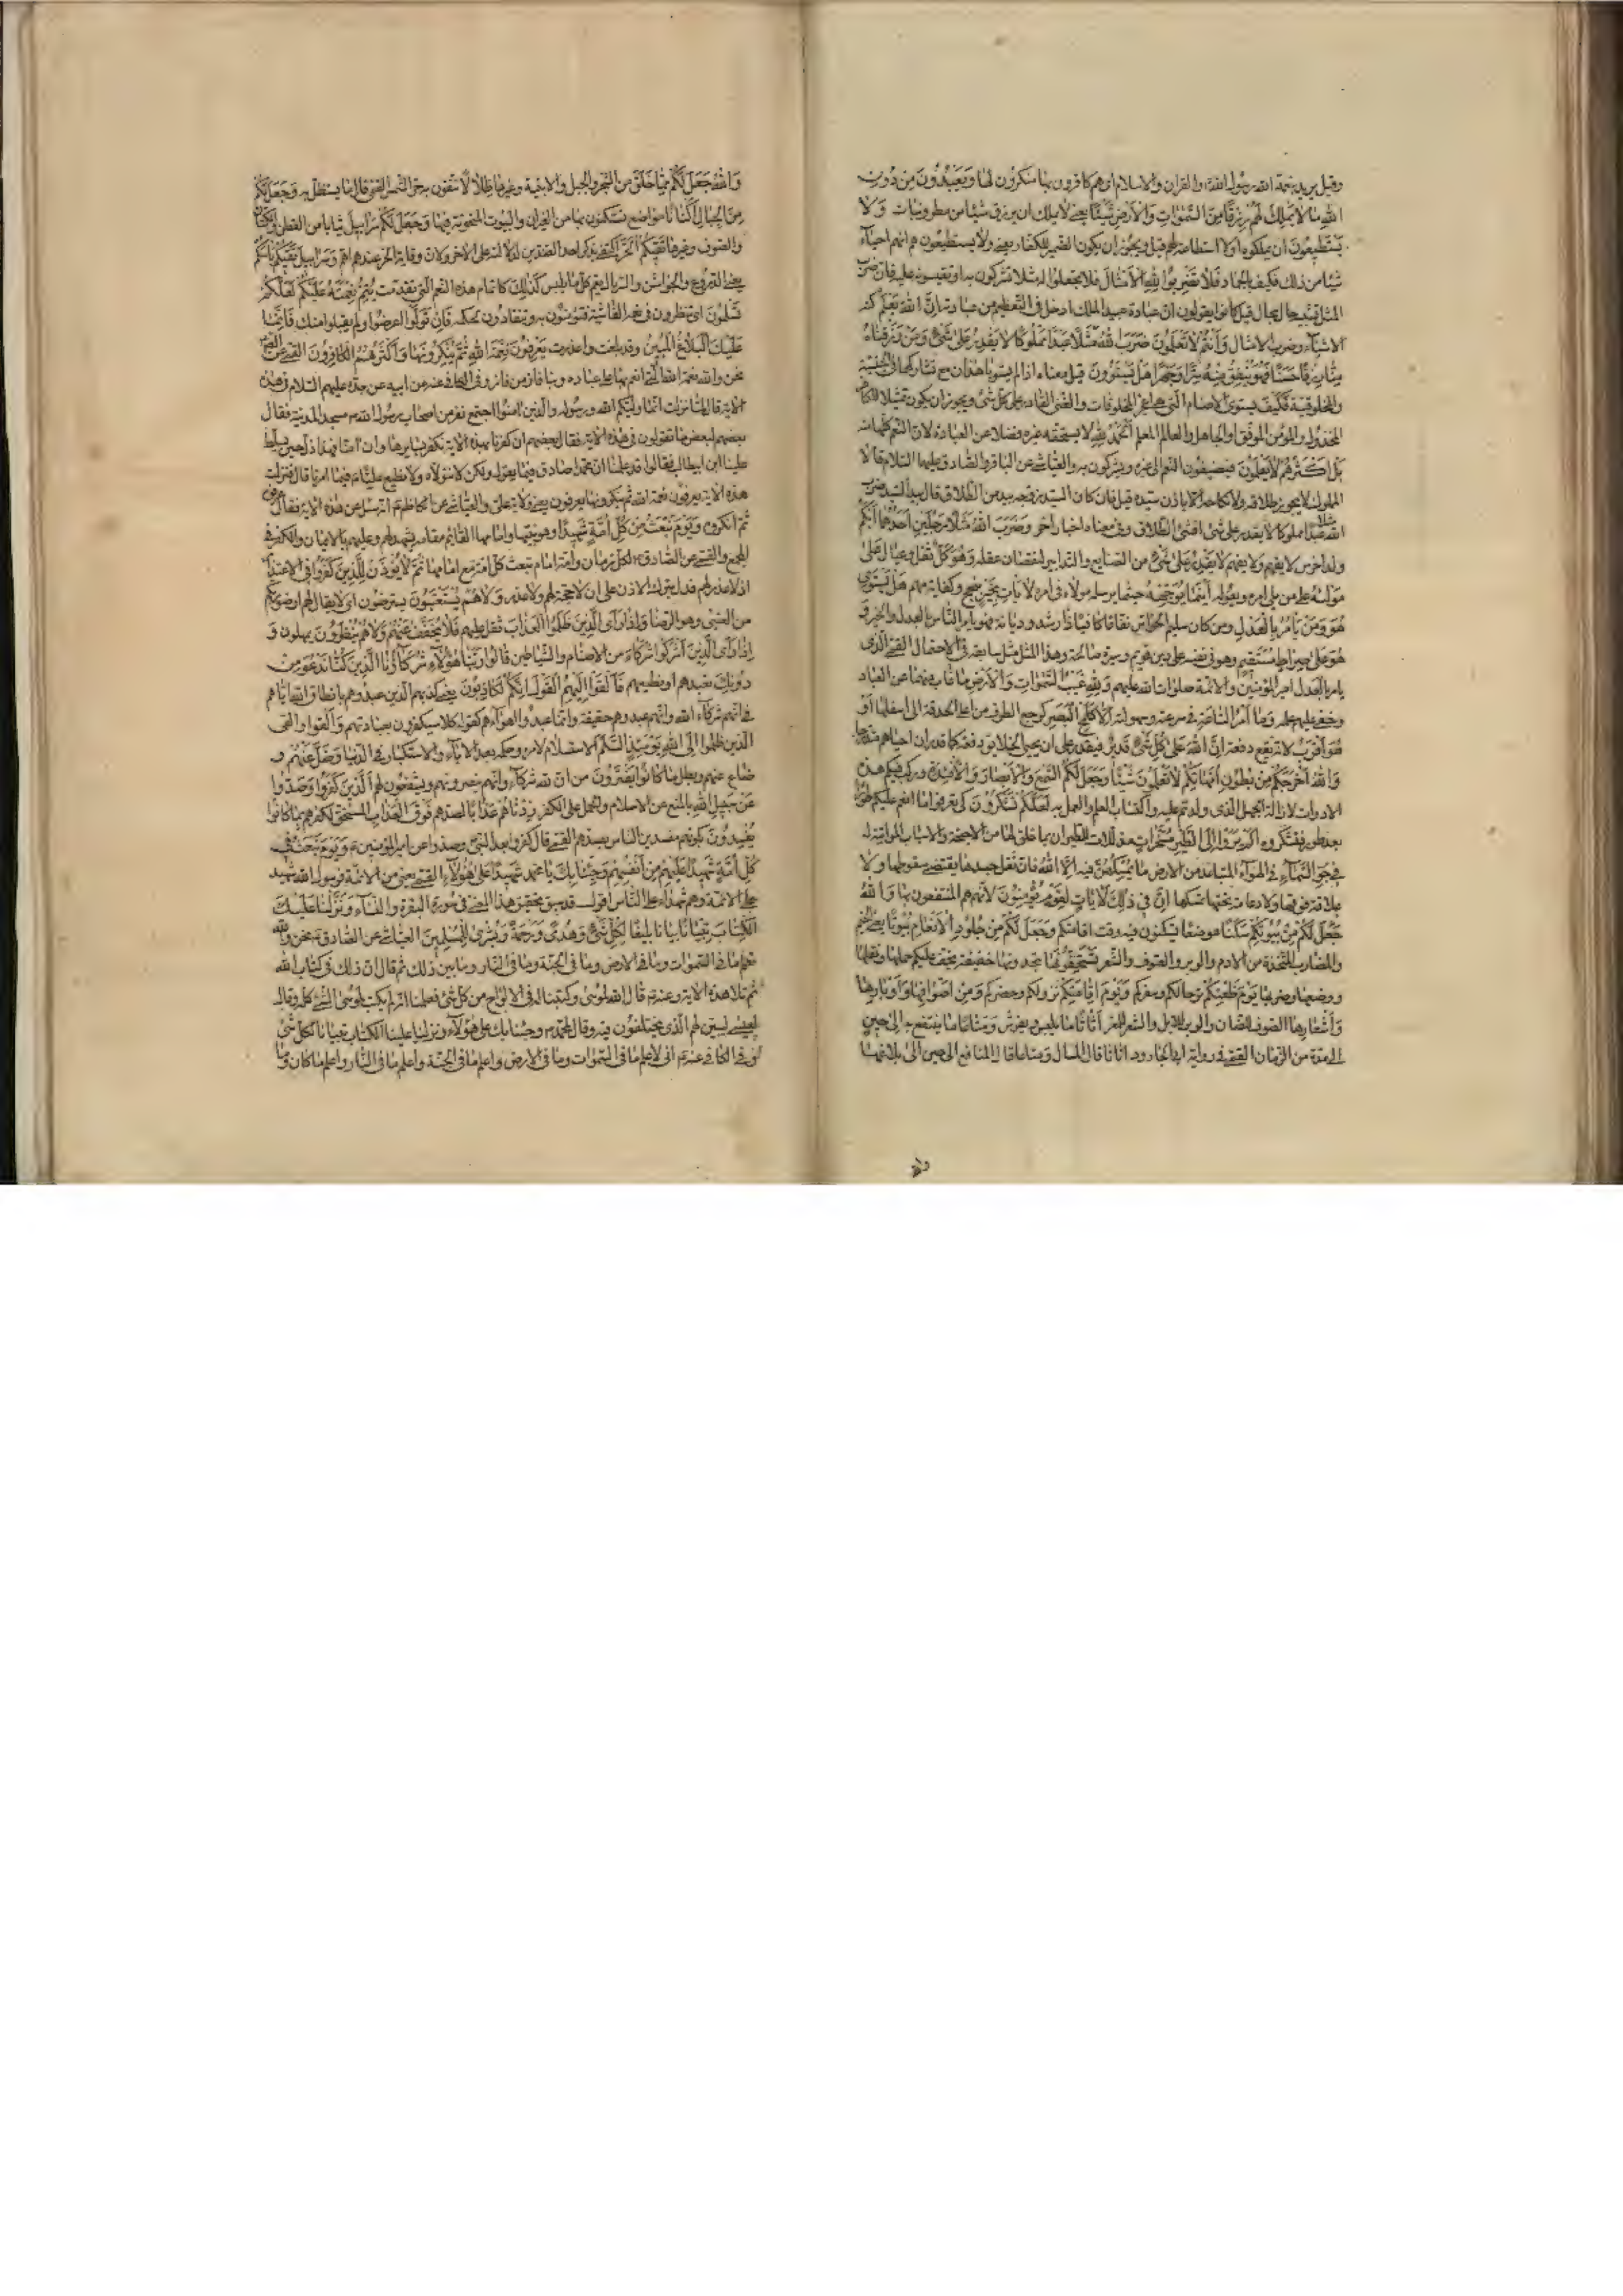 وقيل يريد بنعمة الله رسول الله ص والقران والاسلام اي هم كافرون بها منكرون لها وَيَعْبُدُونَ مِنْ دُونِ
اللهِ مٰا لاٰ يَمْلِكُ لَهُمْ رِزْقًا مِنَ السَّمٰوٰاتِ وَالْاَرْضِ شَيْئًا يعني لا يملك ان يرزق شيئا من مطر ونبات وَلاٰ
يَسْتَطيعُونَ ان يملكوه او لا استطاعة لهم قيل ويجوز ان يكون الضمير للكفار يعني ولا يستطيعون هم انهم احياء
شيئا من ذلك فكيف بالجماد فَلاٰ تَضْرِبُوا لِلّٰهِ الْاَمْثٰالَ فلا تجعلوا له مثلا تشركون به او تقيسونه عليه فان ضرب
المثل تشبيه حال بحال قيل كانوا يقولون ان عبادة عبيد الملك ادخل في التعظيم من عبادته اِنَّ اللهَ يَعْلَمُ كنه
الاشياء وضرب الامثال وَاَنْتُمْ لاٰ تَعْلَمُونَ ضَرَبَ اللهُ مَثَلًا عَبْدًا مَمْلُوكًا لاٰ يَقْدِرُ عَلىٰ شَيْءٍ وَمَنْ رَزَقْنٰاهُ
مِنّٰا رِزْقًا حَسَنًا فَهُوَ يُنْفِقُ مِنْهُ سِرًّا وَجَهْرًا هَلْ يَسْتَوُونَ قيل معناه اذا لم يستويا هذان مع تشاركهما في الجنسية
والمخلوقية فكيف يستوي الاصنام التي هي اعجز المخلوقات والغني القادر على كل شيء ويجوز ان يكون تمثيلا للكافر
المخذول والمؤمن الموفق او الجاهل والعالم المعلم اَلْحَمْدُ لِلّٰهِ لا يستحقه غيره فضلا عن العبادة لان النعم كلها منه
بَلْ اَكْثَرُهُمْ لاٰ يَعْلَمُونَ فيضيفون النعم الى غيره ويشركون به والعياشي عن الباقر والصادق عليهما السلام قالا
المملوك لا يجوز طلاقه ولا نكاحه الا باذن سيده قيل فان كان السيد زوجه بيد من الطلاق قال بيد السيد ضرب
الله مثلا عبدا مملوكا لا يقدر على شيء افشيء الطلاق وفي معناه اخبار اخر وَضَرَبَ اللهُ مَثَلًا رَجُلَيْنِ اَحَدُهُمٰا اَبْكَمُ
ولد اخرس لا يفهم ولا يفهم لاٰ يَقْدِرُ عَلىٰ شَيْءٍ من الصنايع والتدابير لنقصان عقله وَهُوَ كَلٌّ ثقل وعيال عَلىٰ
مَوْلٰاهُ على من يلي امره ويعوله اَيْنَمٰا يُوَجِّهْهُ حيثما يرسله مولاه في امر لاٰ يَأْتِ بِخَيْرٍ بنجح وكفاية مهم هَلْ يَسْتَوِي
هُوَ وَمَنْ يَأْمُرُ بِالْعَدْلِ ومن كان سليم الحواس نفاعا كافيا ذا رشد وديانة فهو يامر الناس بالعدل والخير وَ
هُوَ عَلىٰ صِرٰاطٍ مُسْتَقيمٍ وهو في نفسه على دين قويم وسيرة صالحة وهذا المثل مثل سابقه في الاحتمال القمي الذي
يامر بالعدل امير المؤمنين والائمة صلوات الله عليهم وَلِلّٰهِ غَيْبُ السَّمٰوٰاتِ وَالْاَرْضِ ما غاب فيهما عن العباد
وخفي عليهم علمه وَمٰا اَمْرُ السّٰاعَةِ في سرعته وسهولته اِلّٰا كَلَمْحِ الْبَصَرِ كرجع الطرف من اعلى الحدقة الى اسفلها اَوْ
هُوَ اَقْرَبُ لانه يقع دفعة اِنَّ اللهَ عَلىٰ كُلِّ شَيْءٍ قَديرٌ فيقدر على ان يحيي الخلائق دفعة كما قدر ان احياهم متدرجا
وَاللهُ اَخْرَجَكُمْ مِنْ بُطُونِ اُمَّهٰاتِكُمْ لاٰ تَعْلَمُونَ شَيْئًا وَجَعَلَ لَكُمُ السَّمْعَ وَالْاَبْصٰارَ وَالْاَفْئِدَةَ وركب فيكم هذه
الادوات لازالة الجهل الذي ولدتم عليه واكتساب العلم والعمل به لَعَلَّكُمْ تَشْكُرُونَ كي تعرفوا ما انعم عليكم طورا
بعد طور فتشكروه اَلَمْ يَرَوْا اِلَى الطَّيْرِ مُسَخَّرٰاتٍ مذللات للطيران بما خلق لها من الاجنحة والاسباب المواتية له
في جَوِّ السَّمٰاءِ في الهواء المتباعد من الارض مٰا يُمْسِكُهُنَّ فيه اِلَّا اللهُ فان ثقل جسدها يقتضي سقوطها ولا
علاقة فوقها ولا دعامة تحتها تمسكها اِنَّ في ذٰلِكَ لَاٰيٰاتٍ لِقَوْمٍ يُؤْمِنُونَ لانهم هم المنتفعون بها وَاللهُ
جَعَلَ لَكُمْ مِنْ بُيُوتِكُمْ سَكَنًا موضعا تسكنون فيه وقت اقامتكم وَجَعَلَ لَكُمْ مِنْ جُلُودِ الْاَنْعٰامِ بُيُوتًا يعني الخيم
والمضارب المتخذة من الادم والوبر والصوف والشعر تَسْتَخِفُّونَهٰا تجدونها خفيفة يخف عليكم حملها ونقلها
ووضعها وضربها يَوْمَ ظَعْنِكُمْ ترحالكم وسفركم وَيَوْمَ اِقٰامَتِكُمْ نزولكم وحضركم وَمِنْ اَصْوٰافِهٰا وَاَوْبٰارِهٰا
وَاَشْعٰارِهٰا الصوف للضان والوبر للابل والشعر للمعز اَثٰاثًا ما يلبس ويفرش وَمَتٰاعًا ما ينتفع به اِلىٰ حينٍ
الى مدة من الزمان القمي في رواية ابي الجارود اثاثا قال المال ومتاعا قال المنافع الى حين الى بلاغها
والله
وَاللهُ جَعَلَ لَكُمْ مِمّٰا خَلَقَ من الشجر والجبل والابنية وغيرها ظِلاٰلًا تتقون به حر الشمس القمي قال ما يستظل به وَجَعَلَ لَكُمْ
مِنَ الْجِبٰالِ اَكْنٰانًا مواضع تسكنون بها من الغيران والبيوت المنحوتة فيها وَجَعَلَ لَكُمْ سَرٰابيلَ ثيابا من القطن والكتان
والصوف وغيرها تَقيكُمُ الْحَرَّ اكتفى بذكر احد الضدين لدلالته على الاخر ولان وقاية الحر عندهم اهم وَسَرٰابيلَ تَقيكُمْ بَأْسَكُمْ
يعني الدروع والجواشن والسربال يعم كل ما يلبس كَذٰلِكَ كاتمام هذه النعم التي تقدمت يُتِمُّ نِعْمَتَهُ عَلَيْكُمْ لَعَلَّكُمْ
تُسْلِمُونَ اي تنظرون في نعمه الفاشية فتؤمنون به وتنقادون لحكمه فَاِنْ تَوَلَّوْا اعرضوا ولم يقبلوا منك فَاِنَّمٰا
عَلَيْكَ الْبَلاٰغُ الْمُبينُ وقد بلغت واعذرت يَعْرِفُونَ نِعْمَةَ اللهِ ثُمَّ يُنْكِرُونَهٰا وَاَكْثَرُهُمُ الْكٰافِرُونَ القمي عن الصادق
نحن والله نعمة الله التي انعم بها على عباده وبنا فاز من فاز وفي الكافي عنه عن ابيه عن جده عليهم السلام في هذه
الاية قال لما نزلت انما وليكم الله ورسوله والذين امنوا اجتمع نفر من اصحاب رسول الله ص في مسجد المدينة فقال
بعضهم لبعض ما تقولون في هذه الاية فقال بعضهم ان كفرنا بهذه الاية نكفر بسايرها وان امنا فهذا ذل حين يسلط
علينا ابن ابي طالب فقالوا قد علمنا ان محمدا صادق فيما يقول ولكن لا نتولاه ولا نطيع عليا فيما امرنا قال فنزلت
هذه الاية يعرفون نعمة الله ثم ينكرونها يعرفون يعني ولاية علي والعياشي عن الكاظم ع انه سئل عن هذه الاية فقال عرفوه
ثم انكروه وَيَوْمَ نَبْعَثُ مِنْ كُلِّ اُمَّةٍ شَهيدًا وهو نبيها وامامها القائم مقامه يشهد لهم وعليهم بالايمان والكفر في
المجمع والقمي عن الصادق ع لكل زمان وامة امام تبعث كل امة مع امامها ثُمَّ لاٰ يُؤْذَنُ لِلَّذينَ كَفَرُوا في الاعتذار
اذ لا عذر لهم فدل بترك الاذن على ان لا حجة لهم ولا عذر وَلاٰ هُمْ يُسْتَعْتَبُونَ يسترضون اي لا يقال لهم ارضوا ربكم
من العتبى وهو الرضا وَاِذٰا رَاَى الَّذينَ ظَلَمُوا الْعَذٰابَ ثقل عليهم فَلاٰ يُخَفَّفُ عَنْهُمْ وَلاٰ هُمْ يُنْظَرُونَ يمهلون وَ
اِذٰا رَاَى الَّذينَ اَشْرَكُوا شُرَكٰاءَهُمْ من الاصنام والشياطين قٰالُوا رَبَّنٰا هٰؤُلاٰءِ شُرَكٰاؤُنَا الَّذينَ كُنّٰا نَدْعُوا مِنْ
دُونِكَ نعبدهم او نطيعهم فَاَلْقَوْا اِلَيْهِمُ الْقَوْلَ اِنَّكُمْ لَكٰاذِبُونَ يعني كذبهم الذين عبدوهم بانطاق الله اياهم
في انهم شركاء الله وانهم عبدوهم حقيقة وانما عبدوا اهواءهم كقوله كلا سيكفرون بعبادتهم وَاَلْقَوْا والقى
الذين ظلموا اِلَى اللهِ يَوْمَئِذٍ السَّلَمَ الاستسلام لامره وحكمه بعد الاباء والاستكبار في الدنيا وَضَلَّ عَنْهُمْ و
ضاع عنهم وبطل مٰا كٰانُوا يَفْتَرُونَ من ان لله شركاء وانهم ينصرونهم ويشفعون لهم اَلَّذينَ كَفَرُوا وَصَدُّوا
عَنْ سَبيلِ اللهِ بالمنع عن الاسلام والحمل على الكفر زِدْنٰاهُمْ عَذٰابًا لصدهم فَوْقَ الْعَذٰابِ المستحق لكفرهم بِمٰا كٰانُوا
يُفْسِدُونَ بكونهم مفسدين الناس بصدهم القمي قال كفروا بعد النبي وصدوا عن امير المؤمنين ع وَيَوْمَ نَبْعَثُ في
كُلِّ اُمَّةٍ شَهيدًا عَلَيْهِمْ مِنْ اَنْفُسِهِمْ وَجِئْنٰا بِكَ يا محمد شَهيدًا عَلىٰ هٰؤُلاٰءِ القمي يعني من الائمة فرسول الله شهيد
على الائمة وهم شهداء على الناس اقول قد سبق تحقيق هذا المعنى في سورة البقرة والنساء وَنَزَّلْنٰا عَلَيْكَ
الْكِتٰابَ تِبْيٰانًا بيانا بليغا لِكُلِّ شَيْءٍ وَهُدًى وَرَحْمَةً وَبُشْرىٰ لِلْمُسْلِمينَ العياشي عن الصادق ع نحن والله
نعلم ما في السموات وما في الارض وما في الجنة وما في النار وما بين ذلك ثم قال ان ذلك في كتاب الله
ثم تلا هذه الاية وعنه ع قال الله لموسى وكتبنا له في الالواح من كل شيء فعلمنا انه لم يكتب لموسى الشيء كله وقال
لعيسى ليبين لهم الذي يختلفون فيه وقال لمحمد ص وجئنا بك على هؤلاء ونزلنا عليك الكتاب تبيانا لكل شيء
وفي الكافي عنه ع اني لاعلم ما في السموات وما في الارض واعلم ما في الجنة واعلم ما في النار واعلم ما كان وما